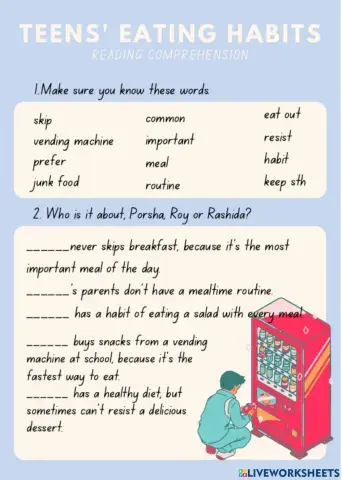 TEENS' EATING HABITS
READING COMPREHENSION
1.Make sure you know these words.
skip
vending machine
prefer
junk food
common
important
meal
routine
eat out
resist
habit
keep sth
2. Who is it about, Porsha, Roy or Rashida?
______never skips breakfast, because it's the most
important meal of the day.
______'s parents don't have a mealtime routine.
______ has a habit of eating a salad with every meal.
______ buys snacks from a vending
machine at school, because it's the
fastest way to eat.
______ has a healthy diet, but
sometimes can't resist a delicious
dessert.
LIVEWORKSHEETS